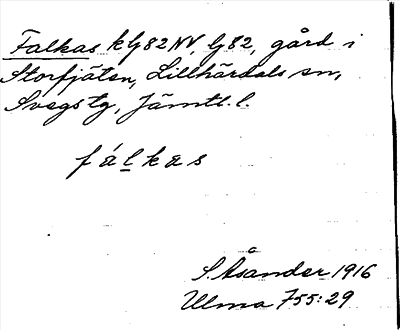 Falkas k Lj 82 NV, Lj 82, gård i
Storfjäten, Lillhärdals sn,
Svegs tg, Jämtl. l.
fálkas
S. Åsander 1916
Ulma 755:29